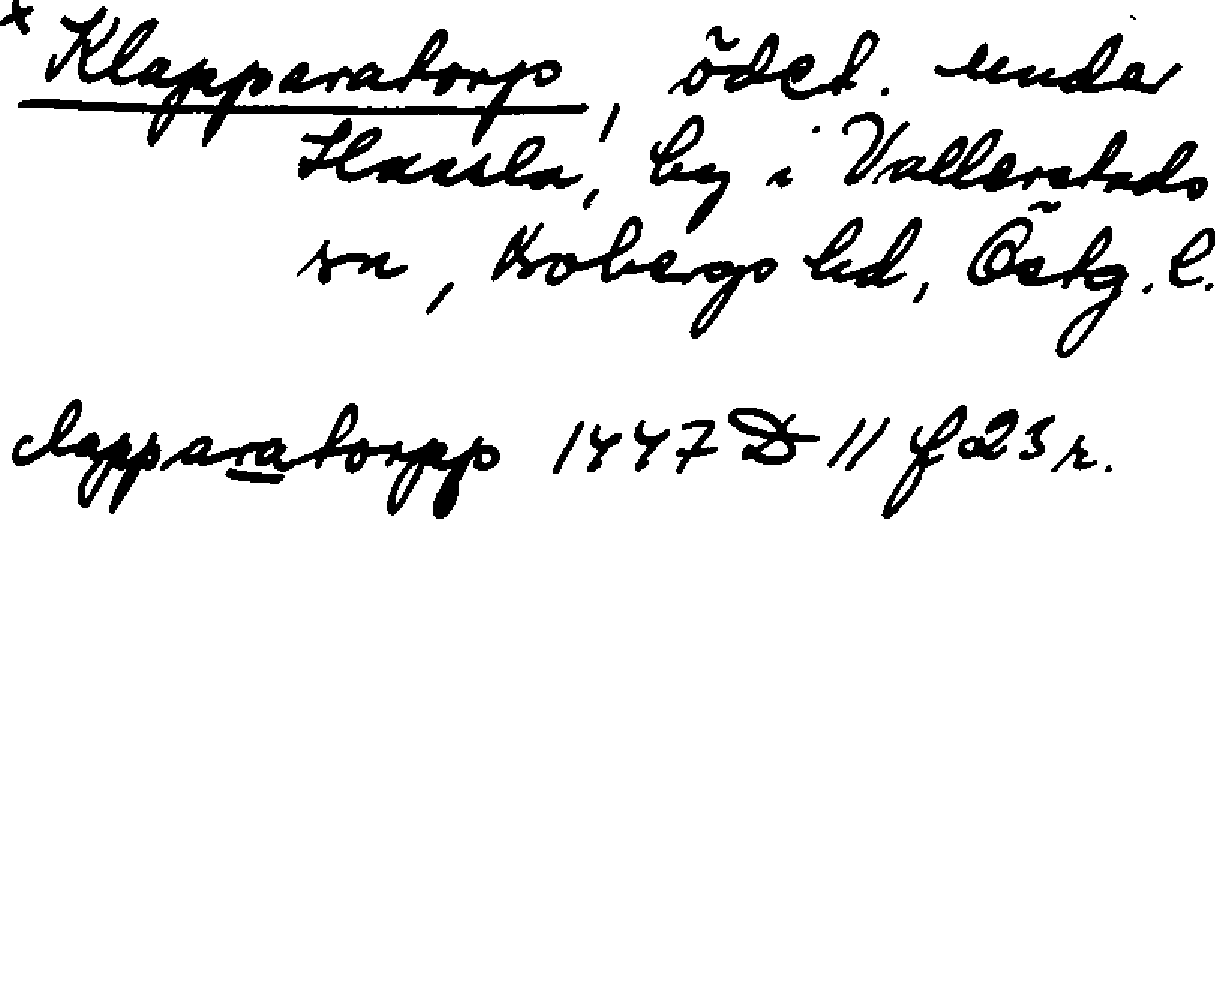 x Klapparatorp, ödet. under
Haussla, by i Vallerstads
sn, Bobergs hd, Östg. l.
clapparatorpp 1447 D 11 f 23 r.